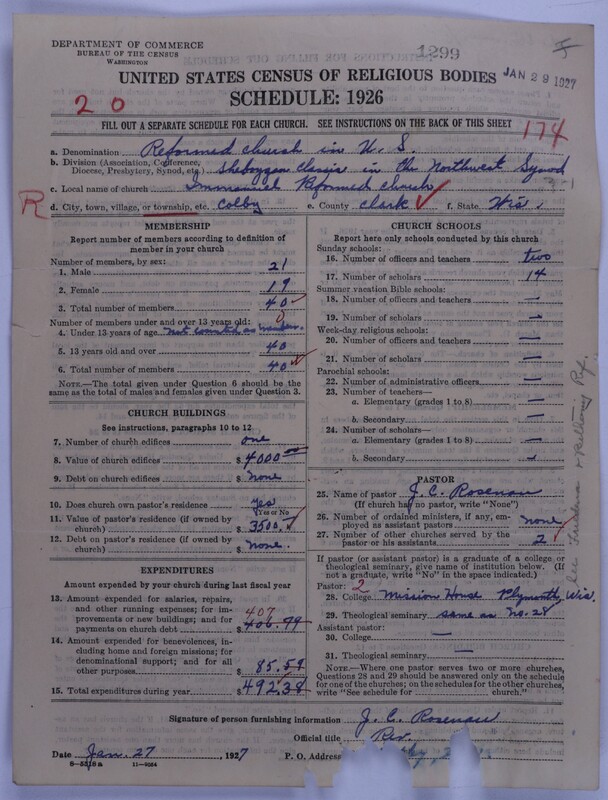 DEPARTMENT OF COMMERCE
BUREAU OF THE CENSUS
WASHINGTON
1299
JAN 29 1927
UNITED STATES CENSUS OF RELIGIOUS BODIES
SCHEDULE: 1926
20
174
FILL OUT A SEPARATE SCHEDULE FOR EACH CHURCH. SEE INSTRUCTIONS ON THE BACK OF THIS SHEET
a. Denomination Reformed church in U. S.
b. Division (Association, Conference, Diocese, Presbytery, Synod, etc.) Sheboygan Classis in the Northwest Synod
c. Local name of church Immanuel Reformed church
R d. City, town, village, or township, etc. Colby e. County Clark f. State Wis.
MEMBERSHIP
Report number of members according to definition of
member in your church
Number of members, by sex:
1. Male 21
2. Female 19
3. Total number of members 40
Number of members under and over 13 years old:
4. Under 13 years of age not counted as members. 0
5. 13 years old and over 40
6. Total number of members 40
NOTE.—The total given under Question 6 should be
same as the total of males and females given under Question 3.
CHURCH BUILDINGS
See instructions, paragraphs 10 to 12
7. Number of church edifices one
8. Value of church edifices $ 4000.00
9. Debt on church edifices $ none
10. Does church own pastor's residence Yes
(Yes or No)
11. Value of pastor's residence (if owned by
church) $ 3500.
12. Debt on pastor's residence (if owned by
church) $ none.
EXPENDITURES
Amount expended by your church during last fiscal year
13. Amount expended for salaries, repairs,
and other running expenses; for im-
provements or new buildings; and for 407
payments on church debt $ 406.79
14. Amount expended for benevolences,
including home and foreign missions; for
denominational support; and for all
other purposes $ 85.59
15. Total expenditures during year $ 492.38
CHURCH SCHOOLS
Report here only schools conducted by this church
Sunday schools:
16. Number of officers and teachers two
17. Number of scholars 14
Summer vacation Bible schools:
18. Number of officers and teachers —
19. Number of scholars —
Week-day religious schools:
20. Number of officers and teachers —
21. Number of scholars —
Parochial schools:
22. Number of administrative officers —
23. Number of teachers—
a. Elementary (grades 1 to 8) —
b. Secondary —
24. Number of scholars—
a. Elementary (grades 1 to 8) —
b. Secondary —
PASTOR
25. Name of pastor J. E. Rosenau
(If church has no pastor, write "None")
26. Number of ordained ministers, if any, em-
ployed as assistant pastors none
27. Number of other churches served by the
pastor or his assistants 2
If pastor (or assistant pastor) is a graduate of a college or
theological seminary, give name of institution below. (If
not a graduate, write "No" in the space indicated.)
Pastor: 2
28. College Mission House Plymouth, Wis.
29. Theological seminary same as No. 28
Assistant pastor:
30. College —
31. Theological seminary —
NOTE.—Where one pastor serves two or more churches,
Questions 28 and 29 should be answered only on the schedule
for one of the churches; on the schedules for the other churches,
write "See schedule for church."
Signature of person furnishing information J. E. Rosenau
Official title Rev.
Date Jan. 27, 1927 P. O. Address
8-5518a 11-9054